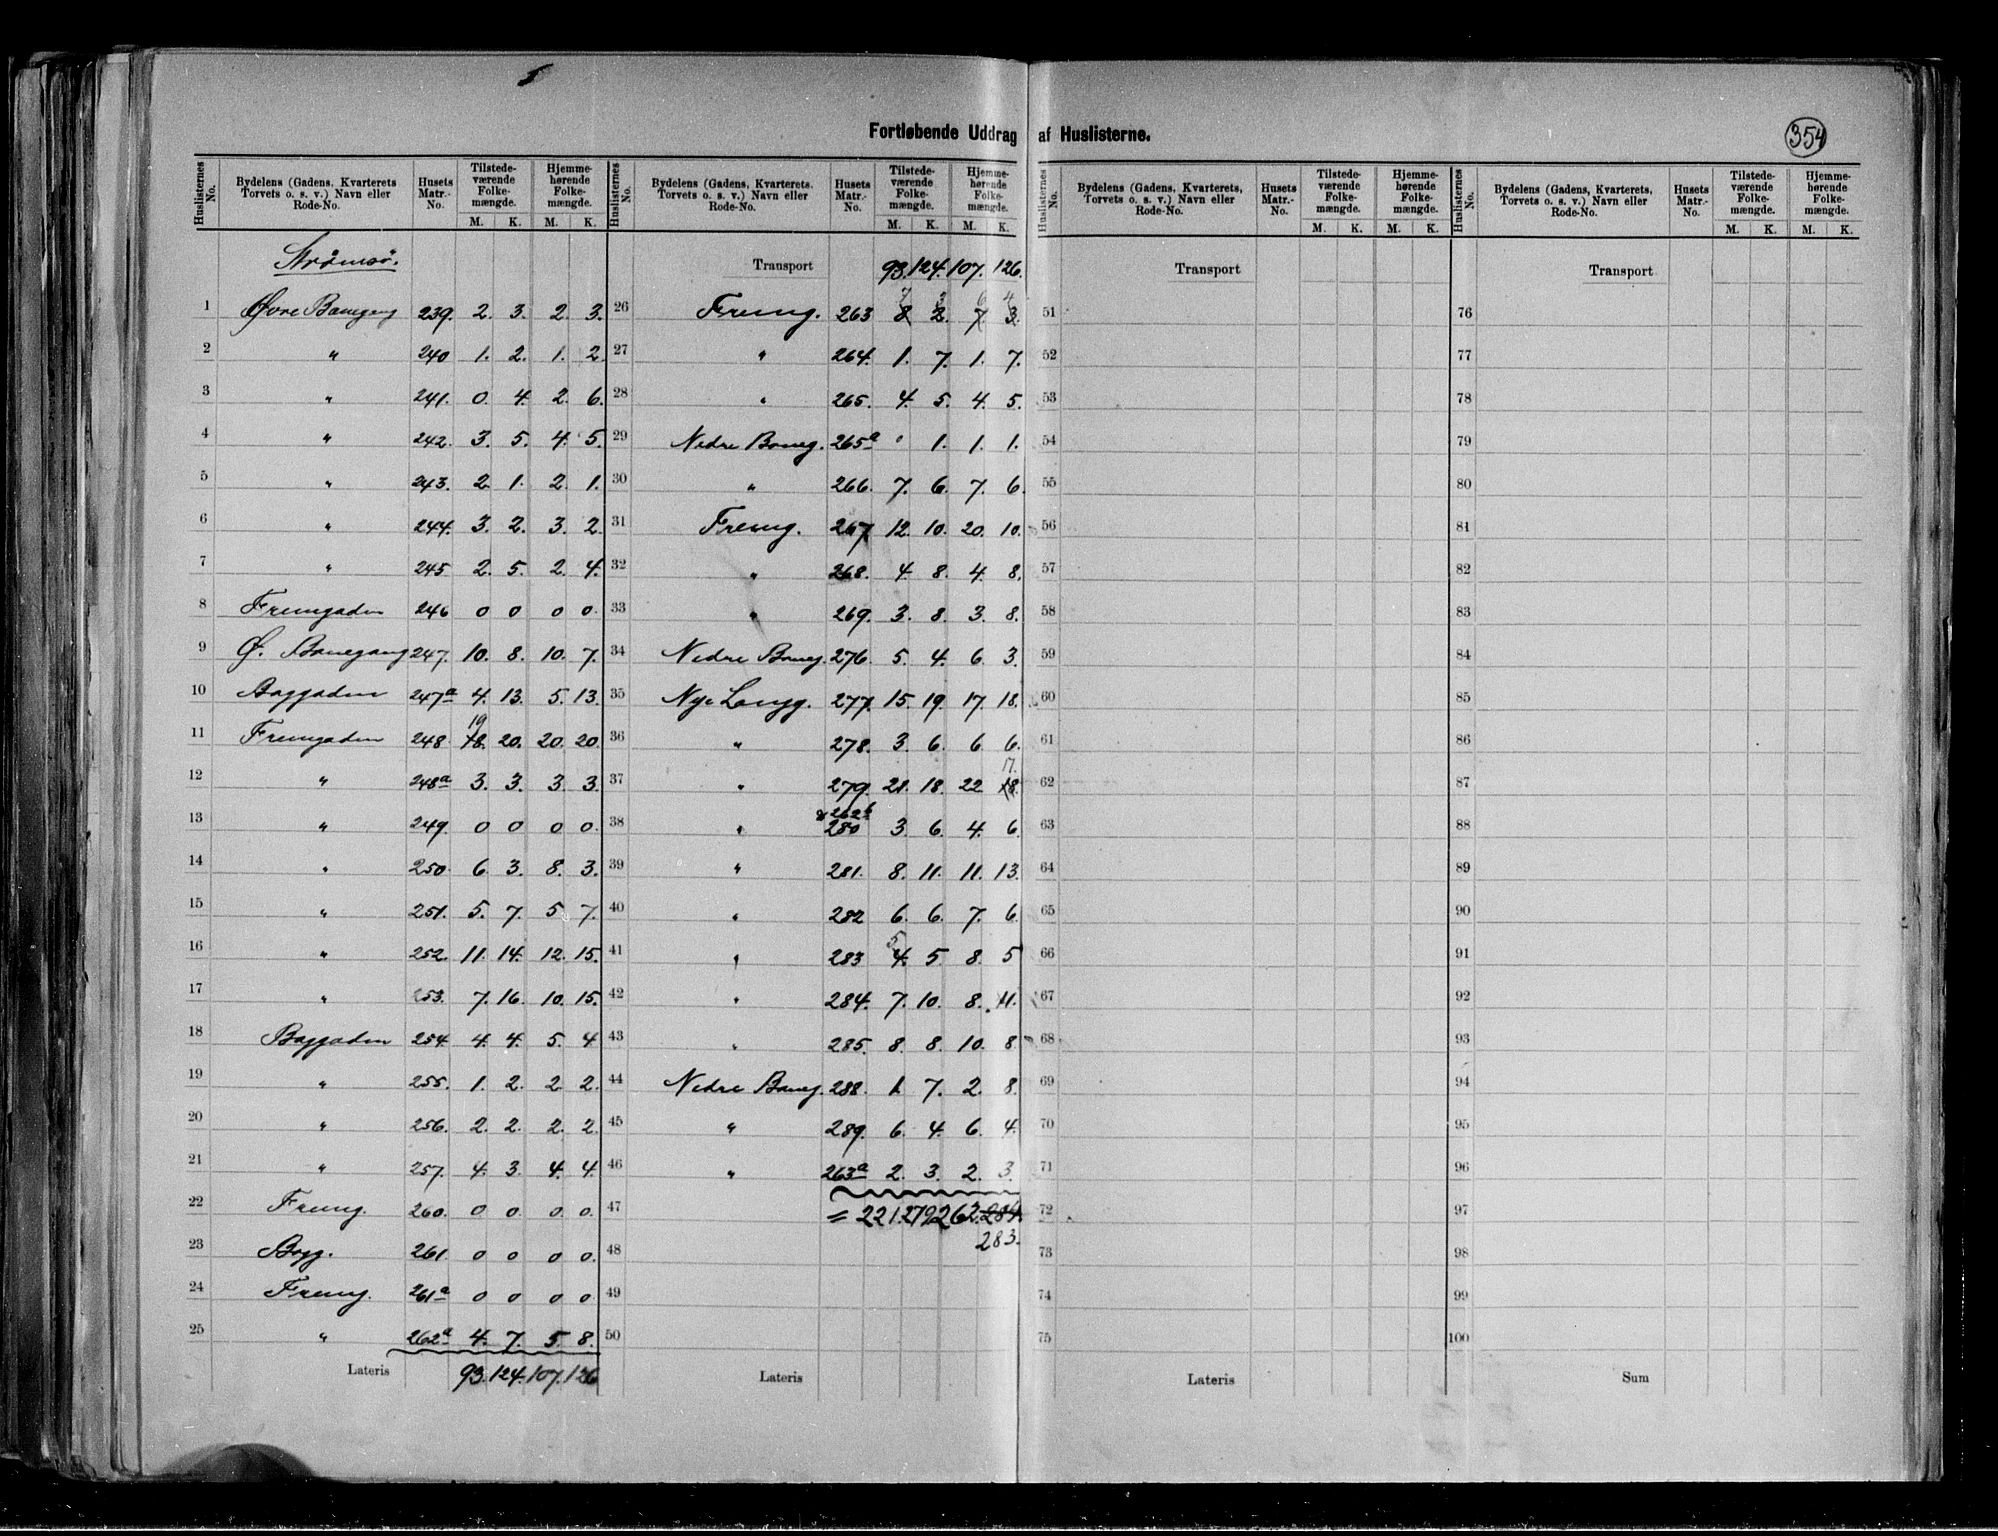 Fortløbende Uddrag af Huslisterne.
354
Huslisternes No. | Bydelens (Gadens, Kvarterets Torvets o. s. v.) Navn eller Rode-No. | Husets Matr.-No. | Tilstede-værende Folke-mængde. M. K. | Hjemme-hørende Folke-mængde. M. K.
Strømsö.
1 Øvre Banegang 239. 2. 3. 2. 3.
2 " 240 1. 2. 1. 2.
3 " 241. 0. 4. 2. 6.
4 " 242. 3. 5. 4. 5.
5 " 243. 2. 1. 2. 1.
6 " 244. 3. 2. 3. 2.
7 " 245. 2. 5. 2. 4.
8 Fremgaden 246 0 0 0 0.
9 Ø. Banegang 247. 10. 8. 10. 7.
10 Baggaden 247a 4. 13. 5. 13.
19
11 Fremgaden 248. 18. 20. 20. 20.
12 " 248a 3. 3. 3. 3.
13 " 249. 0 0 0 0.
14 " 250. 6. 3. 8. 3.
15 " 251. 5. 7. 5. 7.
16 " 252. 11. 14. 12. 15.
17 " 253. 7. 16. 10. 15.
18 Baggaden 254. 4. 4. 5. 4.
19 " 255. 1. 2. 2. 2.
20 " 256. 2. 2. 2. 2.
21 " 257. 4. 3. 4. 4.
22 Fremg. 260. 0 0 0 0.
23 Bagg. 261. 0 0 0 0.
24 Fremg. 261a 0 0 0 0.
25 " 262a 4. 7. 5. 8.
Lateris 93. 124. 107. 126
Huslisternes No. | Bydelens (Gadens, Kvarterets, Torvets o. s. v.) Navn eller Rode-No. | Husets Matr.-No. | Tilstede-værende Folke-mængde. M. K. | Hjemme-hørende Folke-mængde. M. K.
Transport 93. 124. 107. 126.
7 3 6 4
26 Fremg. 263 8 2. 7 3.
27 " 264. 1. 7. 1. 7.
28 " 265. 4. 5. 4. 5.
29 Nedre Baneg. 265a 0 1. 1. 1.
30 " 266. 7. 6. 7. 6.
31 Fremg. 267 12. 10. 20. 10.
32 " 268. 4. 8. 4. 8.
33 " 269. 3. 8. 3. 8.
34 Nedre Baneg. 276. 5. 4. 6. 3.
35 Nye Langg. 277. 15. 19. 17. 18.
36 " 278. 3. 6. 6. 6.
17.
37 " 279. 21. 18. 22. 18.
& 262b
38 " 280 3. 6. 4. 6.
39 " 281. 8. 11. 11. 13.
40 " 282 6. 6. 7. 6.
5
41 " 283 4. 5 8. 5
42 " 284. 7. 10. 8. 11.
43 " 285. 8. 8. 10. 8.
44 Nedre Baneg. 288. 1. 7. 2. 8.
45 " 289. 6. 4. 6. 4.
46 " 263a 2. 3. 2. 3.
47 = 221. 279. 262. 284.
283.
48
49
50
Lateris
Huslisternes No. | Bydelens (Gadens, Kvarterets, Torvets o. s. v.) Navn eller Rode-No. | Husets Matr.-No. | Tilstede-værende Folke-mængde. M. K. | Hjemme-hørende Folke-mængde. M. K.
Transport
51
52
53
54
55
56
57
58
59
60
61
62
63
64
65
66
67
68
69
70
71
72
73
74
75
Lateris
Huslisternes No. | Bydelens (Gadens, Kvarterets, Torvets o. s. v.) Navn eller Rode-No. | Husets Matr.-No. | Tilstede-værende Folke-mængde. M. K. | Hjemme-hørende Folke-mængde. M. K.
Transport
76
77
78
79
80
81
82
83
84
85
86
87
88
89
90
91
92
93
94
95
96
97
98
99
100
Sum